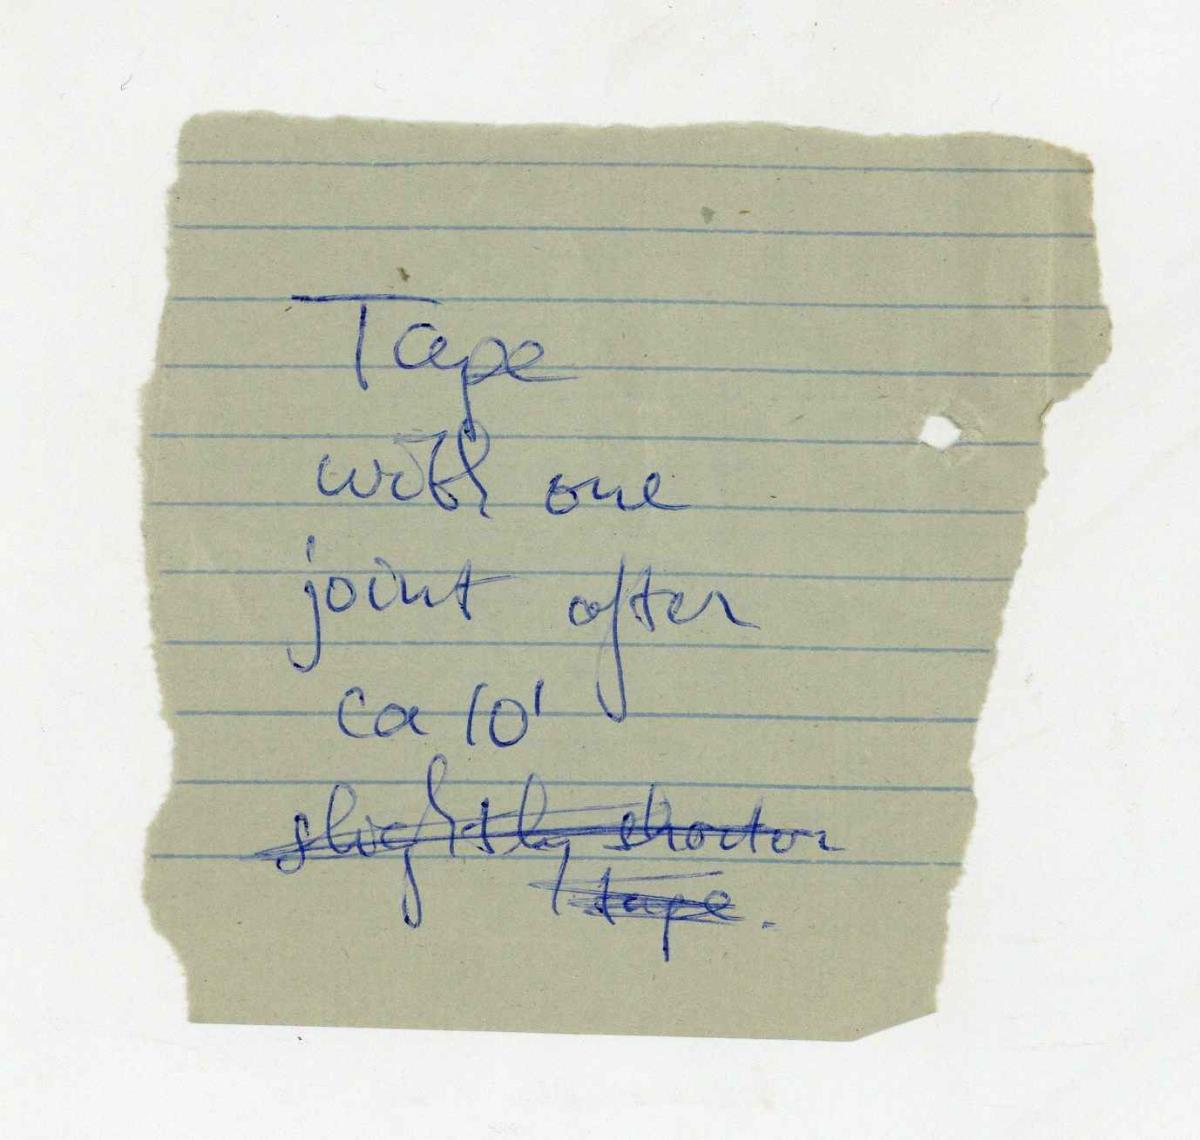 Tape
with one
joint after
ca 10'
slightly shorter
tape.